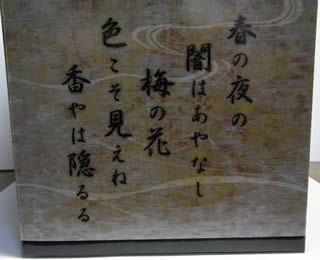 春の夜の
闇はあやなし
梅の花
色こそ見えね
香やは隠るる